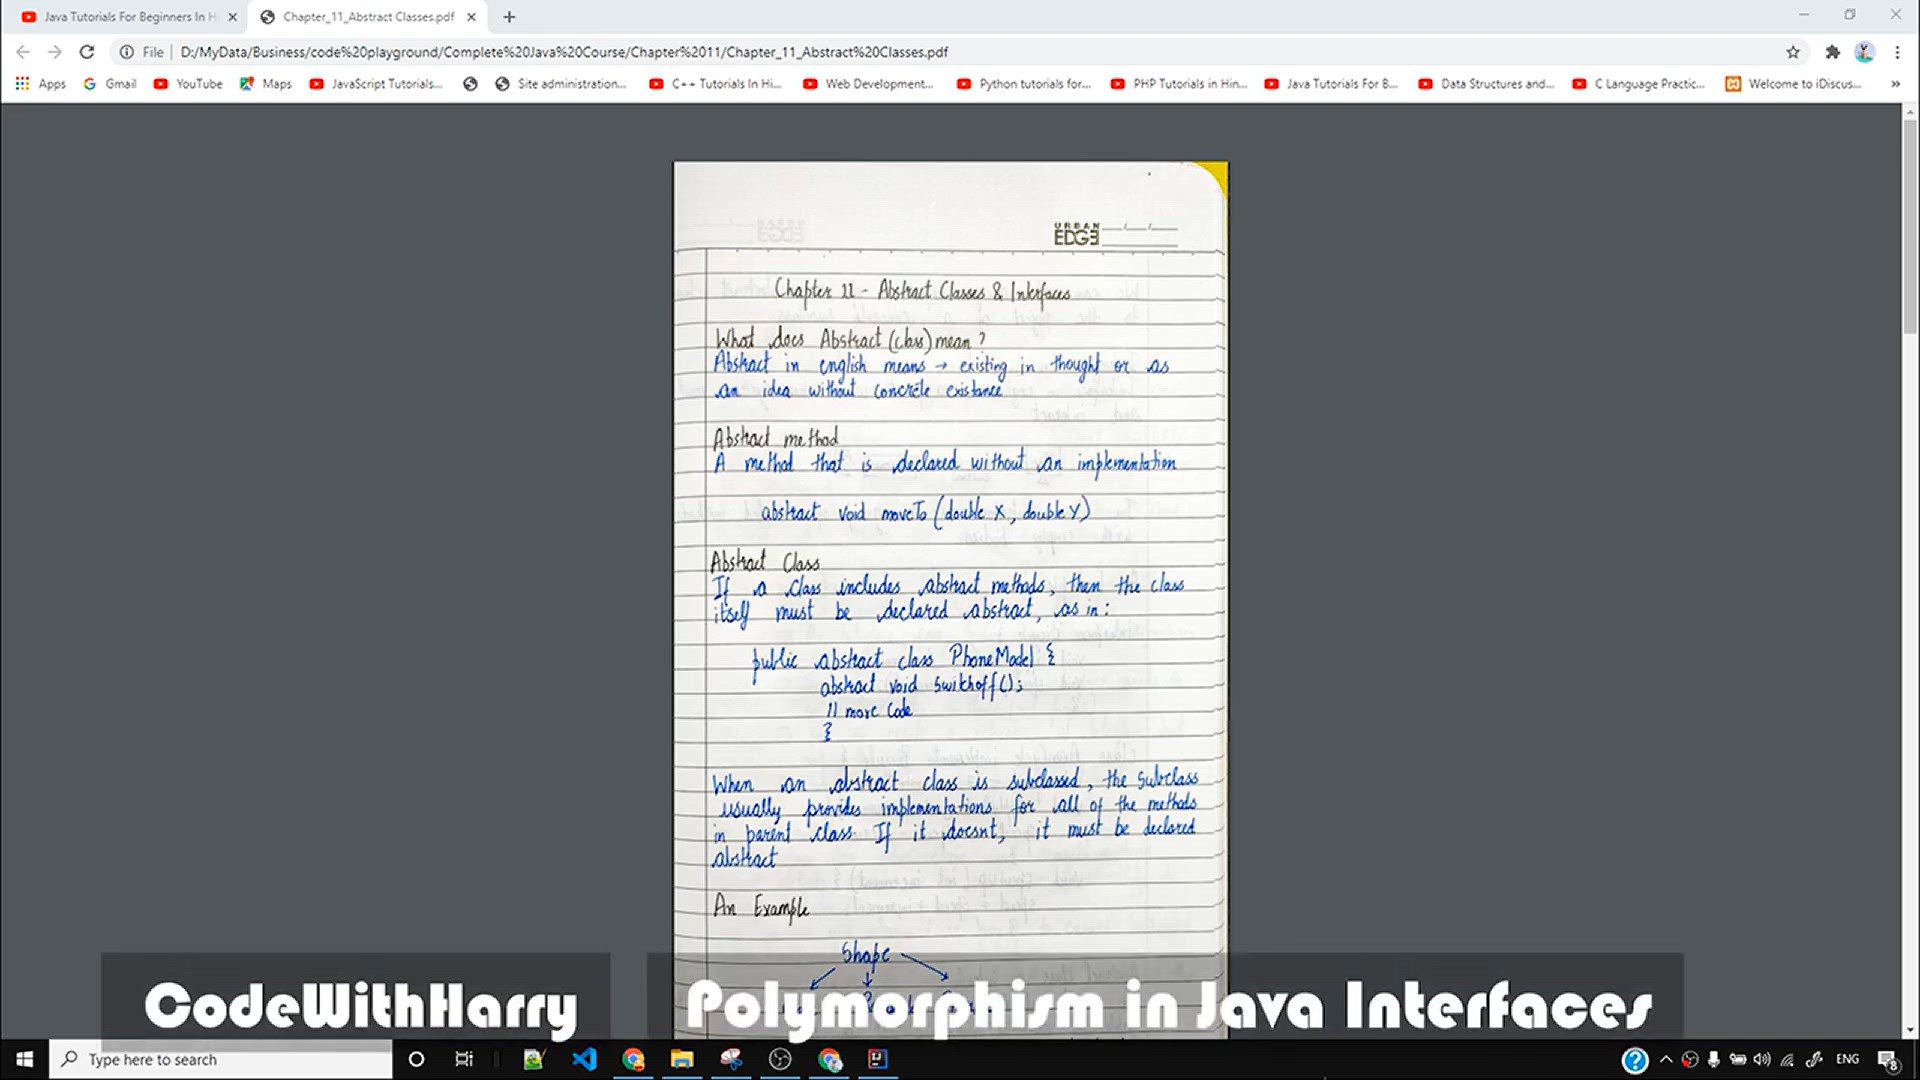 Java Tutorials For Beginners In H
Chapter_11_Abstract Classes.pdf
File | D:/MyData/Business/code%20playground/Complete%20Java%20Course/Chapter%2011/Chapter_11_Abstract%20Classes.pdf
Apps Gmail YouTube Maps JavaScript Tutorials... Site administration... C++ Tutorials In Hi... Web Development... Python tutorials for... PHP Tutorials in Hin... Java Tutorials For B... Data Structures and... C Language Practic... Welcome to iDiscus... »
URBAN
EDGE
Chapter 11 - Abstract Classes & Interfaces
What does Abstract (class) mean?
Abstract in english means → existing in thought or as
an idea without concrete existance
Abstract method
A method that is declared without an implementation
abstract void moveTo (double X, double Y)
Abstract Class
If a class includes abstract methods, then the class
itself must be declared abstract, as in:
public abstract class PhoneModel {
abstract void switchoff();
// more code
}
When an abstract class is subclassed, the subclass
usually provides implementations for all of the methods
in parent class. If it doesnt, it must be declared
abstract
An Example
Shape
CodeWithHarry Polymorphism in Java Interfaces
Type here to search
ENG
8